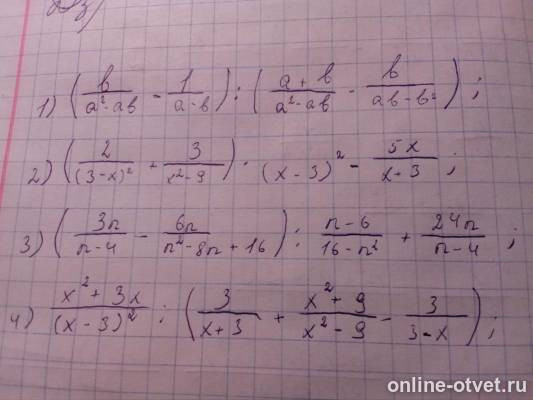 Дз
1) (b/(a²-ab) - 1/(a-b)) : ((a+b)/(a²-ab) - b/(ab-b²));
2) (2/(3-x)² + 3/(x²-9)) · (x-3)² - 5x/(x+3);
3) (3n/(n-4) - 6n/(n²-8n+16)) : (n-6)/(16-n²) + 24n/(n-4);
4) (x²+3x)/(x-3)² : (3/(x+3) + (x²+9)/(x²-9) - 3/(3-x));
online-otvet.ru